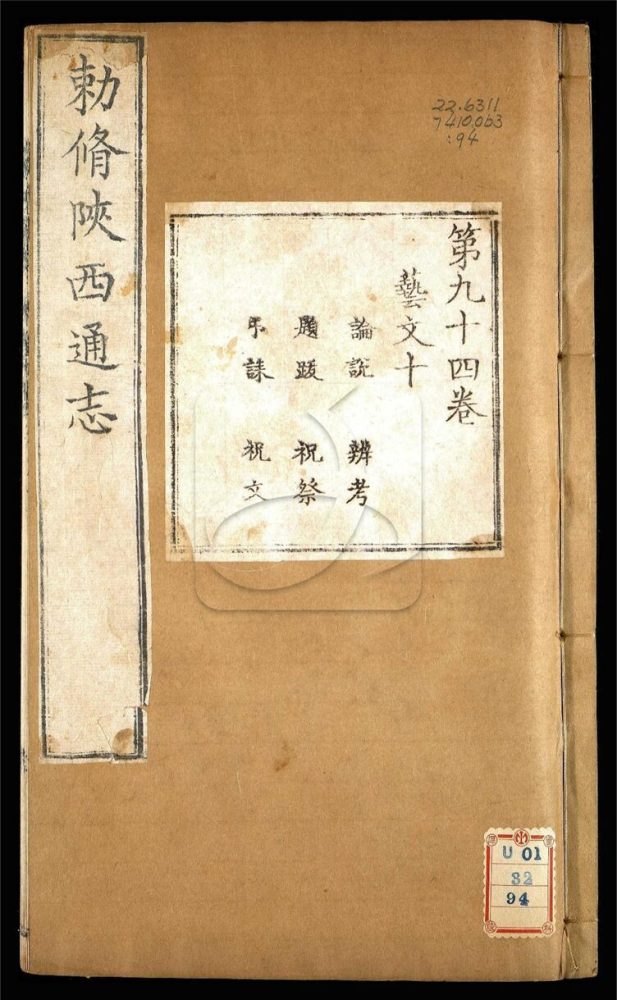 勅脩陝西通志
22.6311
7410.063
:94
第九十四卷
藝文十
論說 辨考
題跋 祝祭
誄 祝文
U 01
32
94